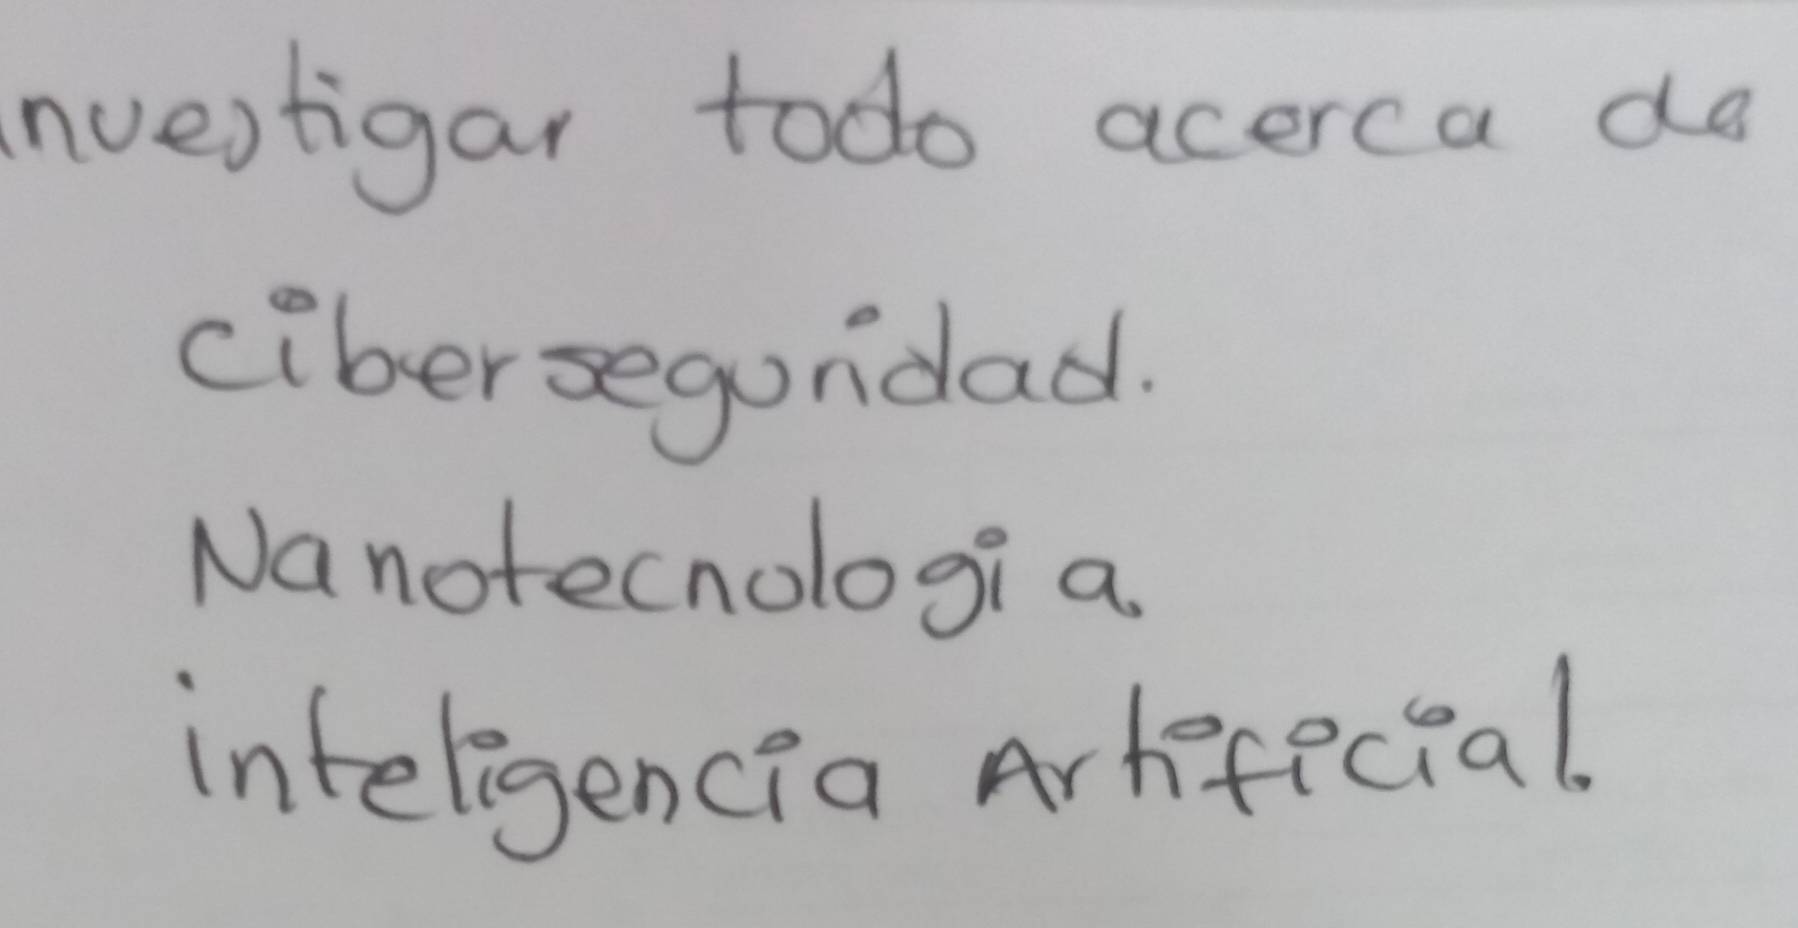 investigar todo acerca de
ciberseguridad.
Nanotecnologia.
inteligencia Artificial.